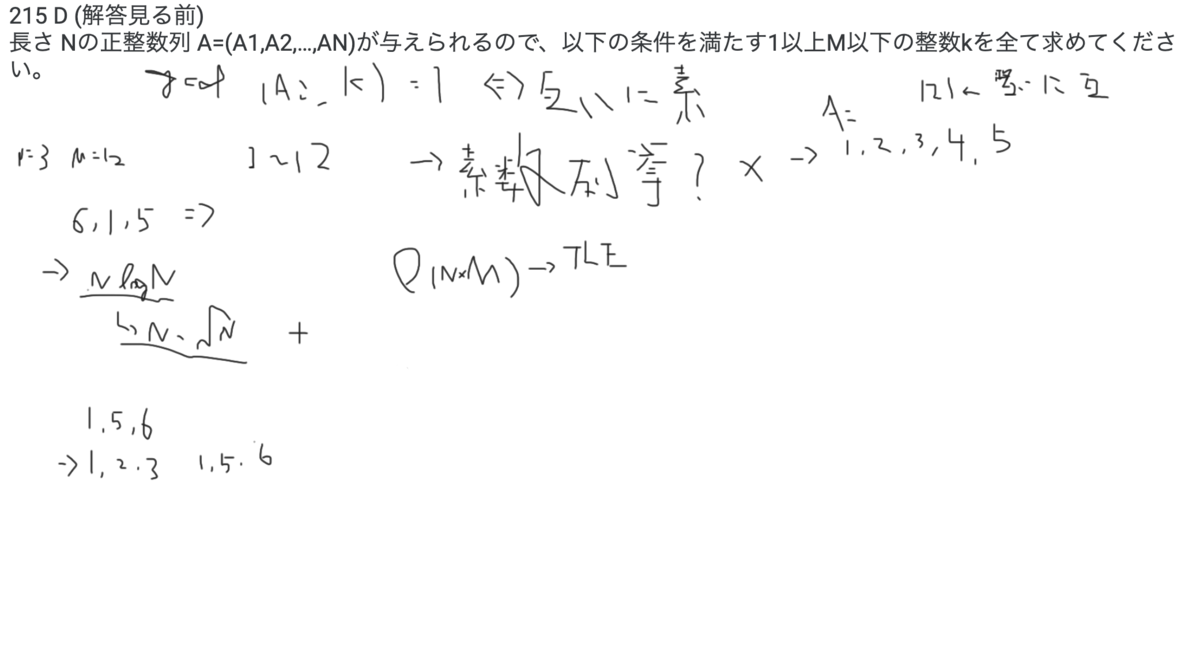 215 D (解答見る前)
長さ Nの正整数列 A=(A1,A2,...,AN)が与えられるので、以下の条件を満たす1以上M以下の整数kを全て求めてくださ
い。
gcd (Ai, k) = 1 ⇔ 互いに素
121←互いに
A=
1, 2, 3, 4, 5
M=12
1~12
→ 素数列等? × →
6, 1, 5 ⇒
→ N log N
O(N×M) → TLE
↳ N・√N +
1, 5, 6
→ 1, 2, 3 1, 5, 6